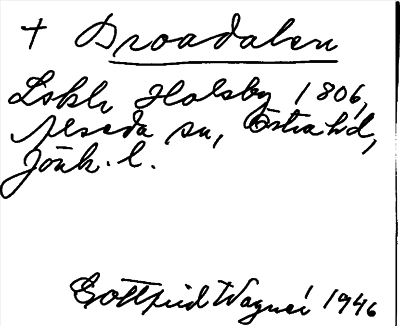 + Droadalen
Lskh Holsby 1806,
Alseda sn, Östra hd,
Jönk. l.
Gottfrid Wagner 1946